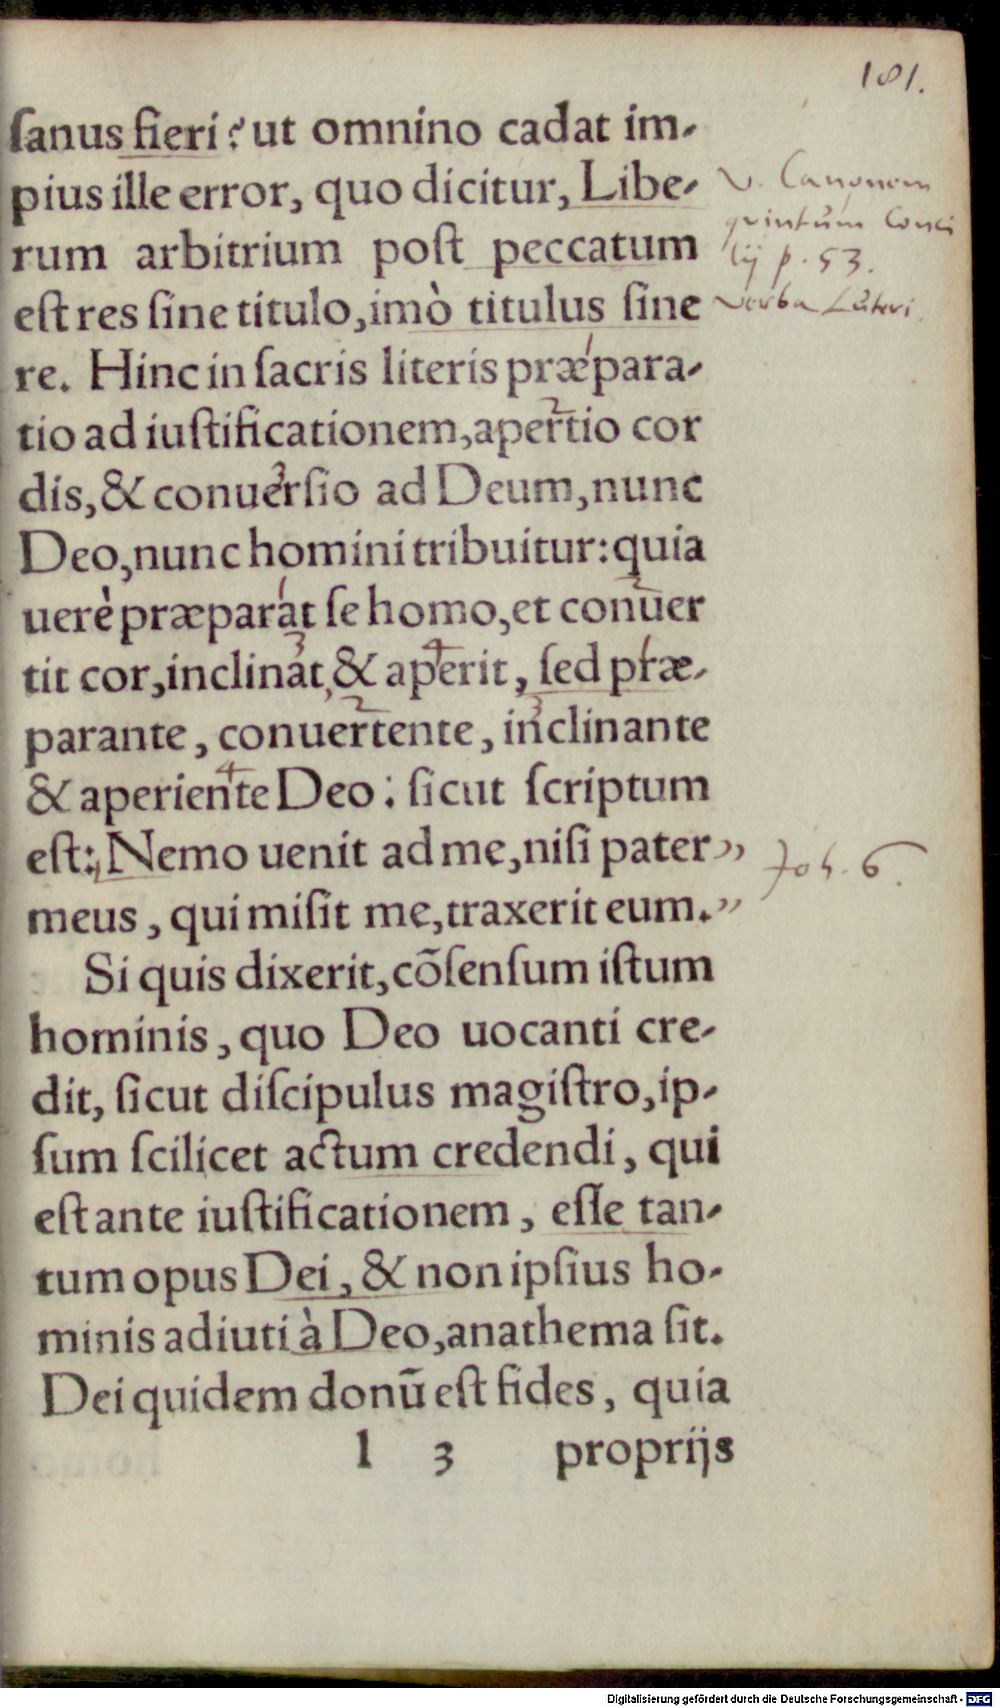 181.
ſanus fieri? ut omnino cadat im-
pius ille error, quo dicitur, Libe-
rum arbitrium poſt peccatum
eſt res ſine titulo, imò titulus ſine
re. Hinc in ſacris literis præpara-
tio ad iuſtificationem, apertio cor
dis, & conuerſio ad Deum, nunc
Deo, nunc homini tribuitur: quia
uerè præparat ſe homo, et conuer
tit cor, inclinat, & aperit, ſed præ-
parante, conuertente, inclinante
& aperiente Deo: ſicut ſcriptum
eſt: Nemo uenit ad me, niſi pater
meus, qui miſit me, traxerit eum.
Si quis dixerit, cõſenſum iſtum
hominis, quo Deo uocanti cre-
dit, ſicut diſcipulus magiſtro, ip-
ſum ſcilicet actum credendi, qui
eſt ante iuſtificationem, eſſe tan-
tum opus Dei, & non ipſius ho-
minis adiuti à Deo, anathema ſit.
Dei quidem donũ eſt fides, quia
l 3 proprijs
v. Canonem
quintum Conci
lij p. 53.
verba Luteri.
Joh. 6.
Digitalisierung gefördert durch die Deutsche Forschungsgemeinschaft - DFG